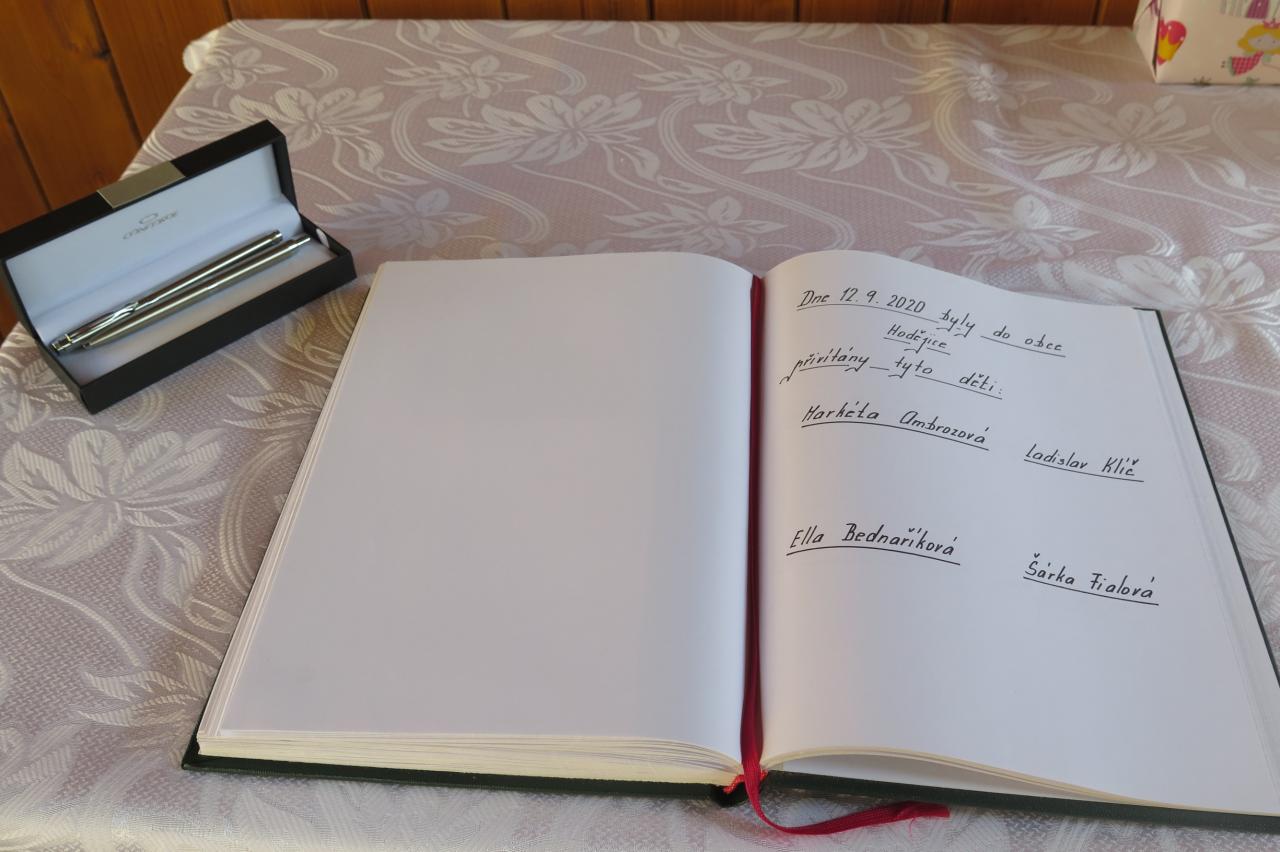 CONCORDE
Dne 12.9.2020 byly do obce
Hodějice
přivítány tyto děti:
Markéta Ambrozová
Ladislav Klíč
Ella Bednaříková
Šárka Fialová